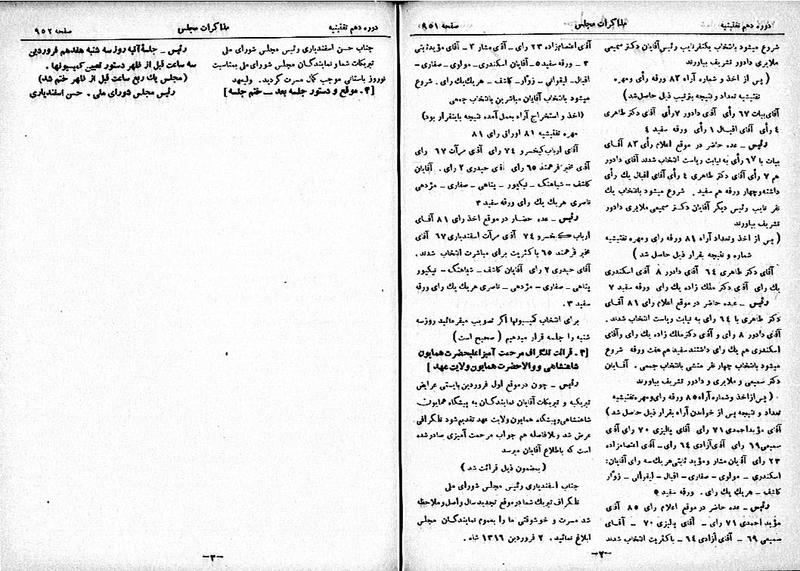 دوره دهم تقنینیه
مذاکرات مجلس
صفحه ۹۵۱
شروع میشود بانتخاب یکنفر نایب رئیس آقایان دکتر سمیعی
ملایری دادور تشریف بیاورند
( پس از اخذ و شماره آراء ۸۳ ورقه رأی ومهره
تفتیشیه تعداد و نتیجه بترتیب ذیل حاصل شد )
آقای بیات ۶۷ رأی آقای دادور ۷ رأی آقای دکتر طاهری
۴ رأی آقای اقبال ۱ رأی ورقه سفید ۴
رئیس ـ عده حاضر در موقع اعلام رأی ۸۳ آقای
بیات با ۶۷ رأی به نیابت ریاست انتخاب شدند آقای دادور
هم ۷ رأی آقای دکتر طاهری ۴ رأی آقای اقبال یك رأی
داشته وچهار ورقه هم سفید . شروع میشود بانتخاب یك
نفر نایب رئیس دیگر آقایان دکتر سمیعی ملایری دادور
تشریف بیاورند
( پس از اخذ وتعداد آراء ۸۱ ورقه رای ومهره تفتیشیه
شماره و نتیجه بقرار ذیل حاصل شد )
آقای دکتر طاهری ۶۴ رأی آقای دادور ۸ آقای اسکندری
یك رأی آقای دکتر ملك زاده یك رای ورقه سفید ۷
رئیس ـ عده حاضر در موقع اعلام رای ۸۱ آقای
دکتر طاهری با ۶۴ رای به نیابت ریاست انتخاب شدند .
آقای دادور ۸ رای و آقای دکتر ملك زاده یك رای وآقای
اسکندری هم یك رای داشتند سفید هم هفت ورقه شروع
میشود بانتخاب چهار نفر منشی بانتخاب جمعی . آقایان
دکتر سمیعی و ملایری و دادور تشریف بیاورند
( پس از اخذ وشماره آراء ۸۵ ورقه رای ومهره تفتیشیه
تعداد و نتیجه پس از خواندن آراء بقرار ذیل حاصل شد )
آقای مؤید احمدی ۷۱ رای آقای پالیزی ۷۰ رای آقای
سمیعی ۶۹ رای آقای آزادی ۶۴ رای ـ آقای اعتصام زاده
۲۳ رای آقایان مشار ومؤید ثابتی هریك سه رای آقایان:
اسکندری ـ مولوی ـ صفاری ـ اقبال ـ لیقوانی ـ زوار
کاشف ـ هریك یك رای . ورقه سفید ۵
رئیس ـ عده حاضر در موقع اعلام رای ۸۵ آقای
مؤید احمدی ۷۱ رای ـ آقای پالیزی ۷۰ ـ آقای
سمیعی ۶۹ ـ آقای آزادی ۶۴ ـ باکثریت انتخاب شدند
آقای اعتصام زاده ۲۳ رای ـ آقای مشار ۳ ـ آقای مؤید ثابتی
۳ ـ ورقه سفید ۵ ـ آقایان اسکندری ـ مولوی ـ صفاری ـ
اقبال ـ لیقوانی ـ زوار ـ کاشف ـ هریك یك رای . شروع
میشود بانتخاب آقایان مباشرین بانتخاب جمعی
( اخذ و استخراج آراء بعمل آمده نتیجه باینقرار بود )
مهره تفتیشیه ۸۱ اوراق رای ۸۱
آقای ارباب کیخسرو ۷۴ رای آقای مرآت ۶۷ رای
آقای مخبر فرهمند ۶۵ رای آقای حیدری ۲ رای . آقایان
کاشف ـ شباهنگ ـ نیکپور ـ پناهی ـ صفاری ـ مژدهی
ناصری هر یك یك رای ورقه سفید ۳
رئیس ـ عده حضار در موقع اخذ رای ۸۱ آقای
ارباب کیخسرو ۷۴ آقای مرآت اسفندیاری ۶۷ آقای
مخبر فرهمند ۶۵ با کثریت برای مباشرت انتخاب شدند .
آقای حیدری ۲ رای آقایان کاشف ـ شباهنگ ـ نیکپور
پناهی ـ صفاری ـ مژدهی ـ ناصری هریك یك رای ورقه
سفید ۳ .
برای انتخاب کمیسیونها اگر تصویب میفرمائید روز سه
شنبه را جلسه قرار میدهیم ( صحیح است )
[۳ ـ قرائت تلگراف مرحمت آمیز اعلیحضرت همایون
شاهنشاهی و والاحضرت همایون ولایت عهد ]
رئیس ـ چون در موقع اول فروردین بایستی عرایض
تبریکیه و تبریکات آقایان نمایندگان به پیشگاه همایون
شاهنشاهی وپیشگاه همایون ولایت عهد تقدیم شود تلگرافی
عرض شد وبلافاصله هم جواب مرحمت آمیزی صادر شده
است که باطلاع آقایان میرسد
( بمضمون ذیل قرائت شد )
جناب اسفندیاری رئیس مجلس شورای ملی
تلگراف تبریك شما در موقع تجدید سال واصل وملاحظه
شد مسرت و خوشوقتی ما را بعموم نمایندگان مجلس
ابلاغ نمائید . ۲ فروردین ۱۳۱۶ شاه .
ـ۲ـ
دوره دهم تقنینیه
مذاکرات مجلس
صفحه ۹۵۲
جناب حسن اسفندیاری رئیس مجلس شورای ملی
تبریکات شما و نمایندگان مجلس شورای ملی بمناسبت
نوروز باستانی موجب کمال مسرت گردید . ولیعهد
[۴ ـ موقع و دستور جلسه بعد ـ ختم جلسه ]
رئیس ـ جلسهٔ آتیه روز سه شنبه هفدهم فروردین
سه ساعت قبل از ظهر دستور تعیین کمیسیونها .
(مجلس یك ربع ساعت قبل از ظهر ختم شد)
رئیس مجلس شورای ملی . حسن اسفندیاری
ـ۳ـ